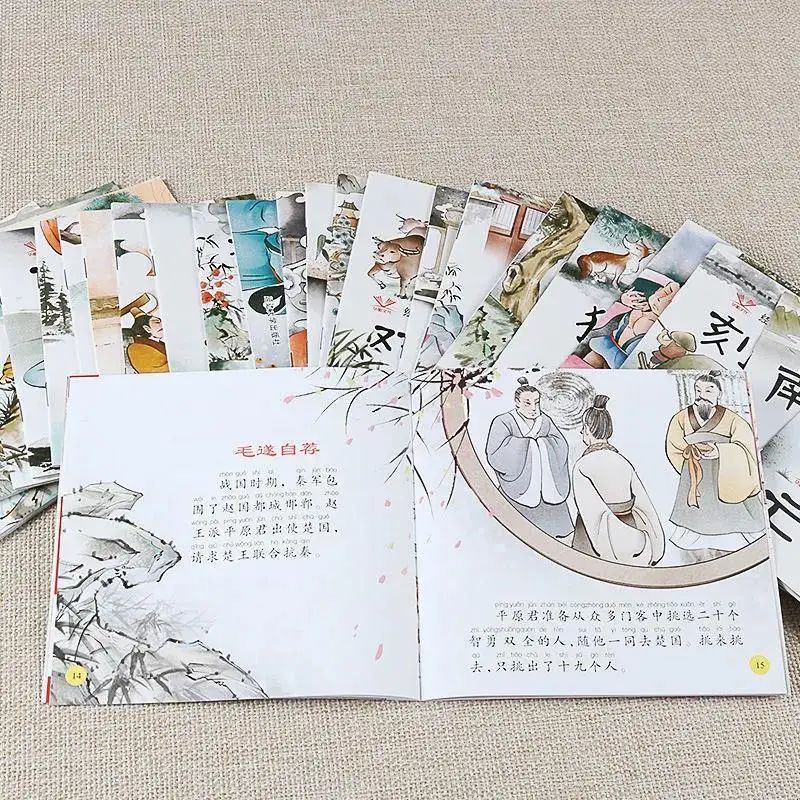 刻
毛遂自荐
zhàn guó shí qī qín jūn bāo
战国时期，秦军包
wéi le zhào guó dū chéng hán dān zhào
围了赵国都城邯郸。赵
wáng pài píng yuán jūn chū shǐ chǔ guó
王派平原君出使楚国，
qǐng qiú chǔ wáng lián hé kàng qín
请求楚王联合抗秦。
14
píng yuán jūn zhǔn bèi cóng zhòng duō mén kè zhōng tiāo xuǎn èr shí gè
平原君准备从众多门客中挑选二十个
zhì yǒng shuāng quán de rén suí tā yì tóng qù chǔ guó tiāo lái tiāo
智勇双全的人，随他一同去楚国。挑来挑
qù zhǐ tiāo chū le shí jiǔ gè rén
去，只挑出了十九个人。
15